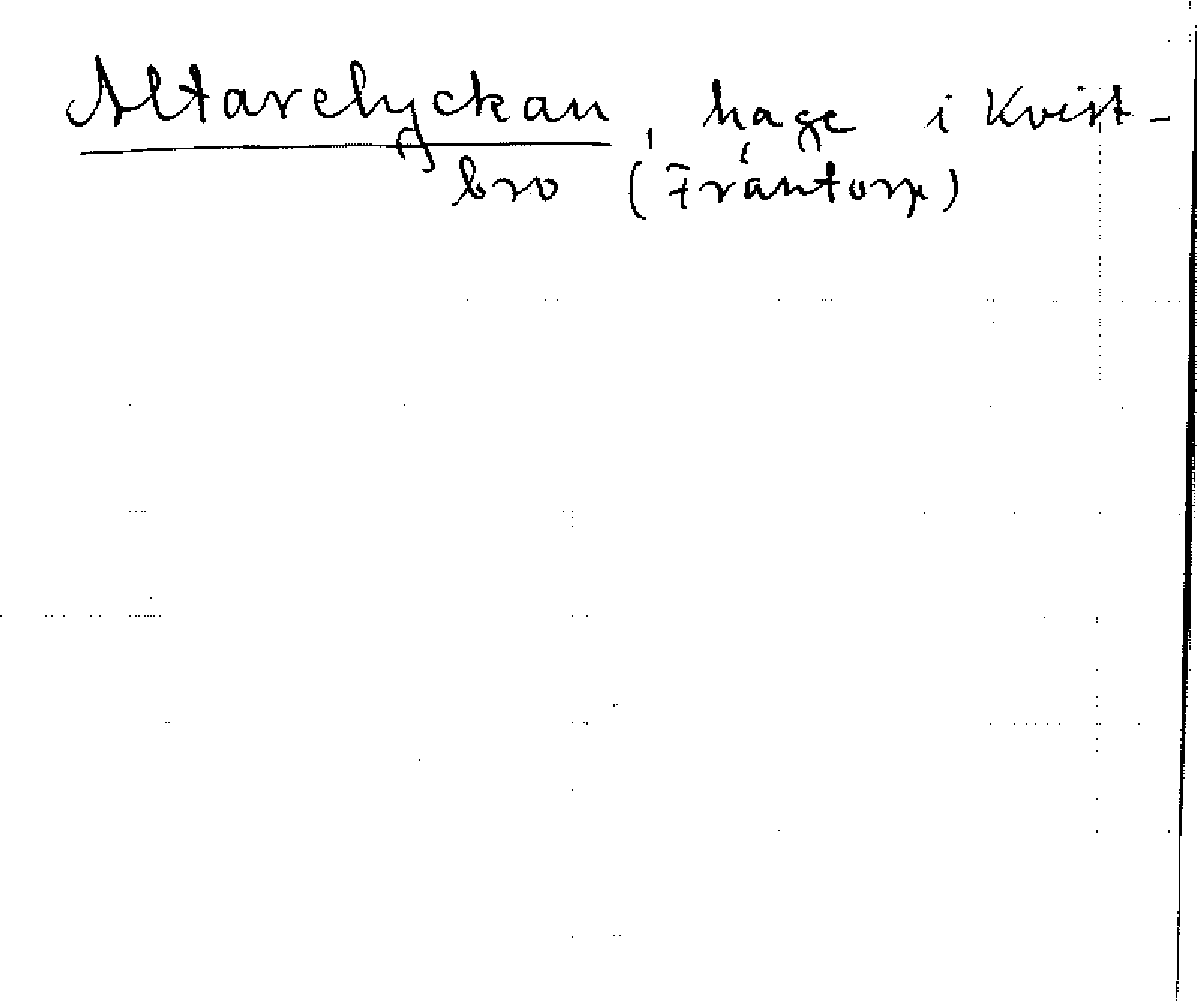 Altarelyckan, hage i Kvist-
bro (Fråntorp)